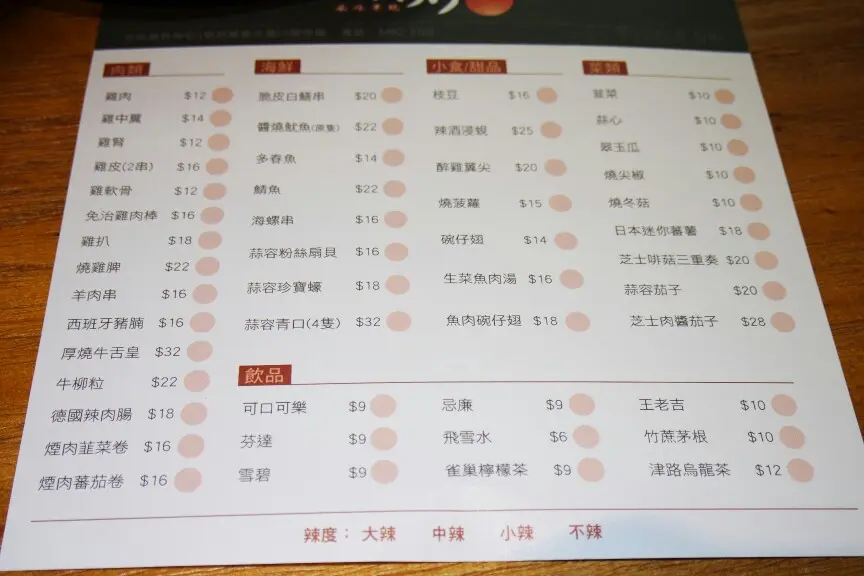 肉類
雞肉 $12
雞中翼 $14
雞腎 $12
雞皮(2串) $16
雞軟骨 $12
免治雞肉棒 $16
雞扒 $18
燒雞髀 $22
羊肉串 $16
西班牙豬腩 $16
厚燒牛舌皇 $32
牛柳粒 $22
德國辣肉腸 $18
煙肉韮菜卷 $16
煙肉蕃茄卷 $16
海鮮
脆皮白鱔串 $20
醬燒魷魚(原隻) $22
多春魚 $14
鯖魚 $22
海螺串 $16
蒜容粉絲扇貝 $16
蒜容珍寶蠔 $18
蒜容青口(4隻) $32
小食/甜品
枝豆 $16
辣酒浸蜆 $25
醉雞翼尖 $20
燒菠蘿 $15
碗仔翅 $14
生菜魚肉湯 $16
魚肉碗仔翅 $18
菜類
韮菜 $10
蒜心 $10
翠玉瓜 $10
燒尖椒 $10
燒冬菇 $10
日本迷你蕃薯 $18
芝士啡菇三重奏 $20
蒜容茄子 $20
芝士肉醬茄子 $28
飲品
可口可樂 $9
芬達 $9
雪碧 $9
忌廉 $9
飛雪水 $6
雀巢檸檬茶 $9
王老吉 $10
竹蔗茅根 $10
津路烏龍茶 $12
辣度： 大辣 中辣 小辣 不辣